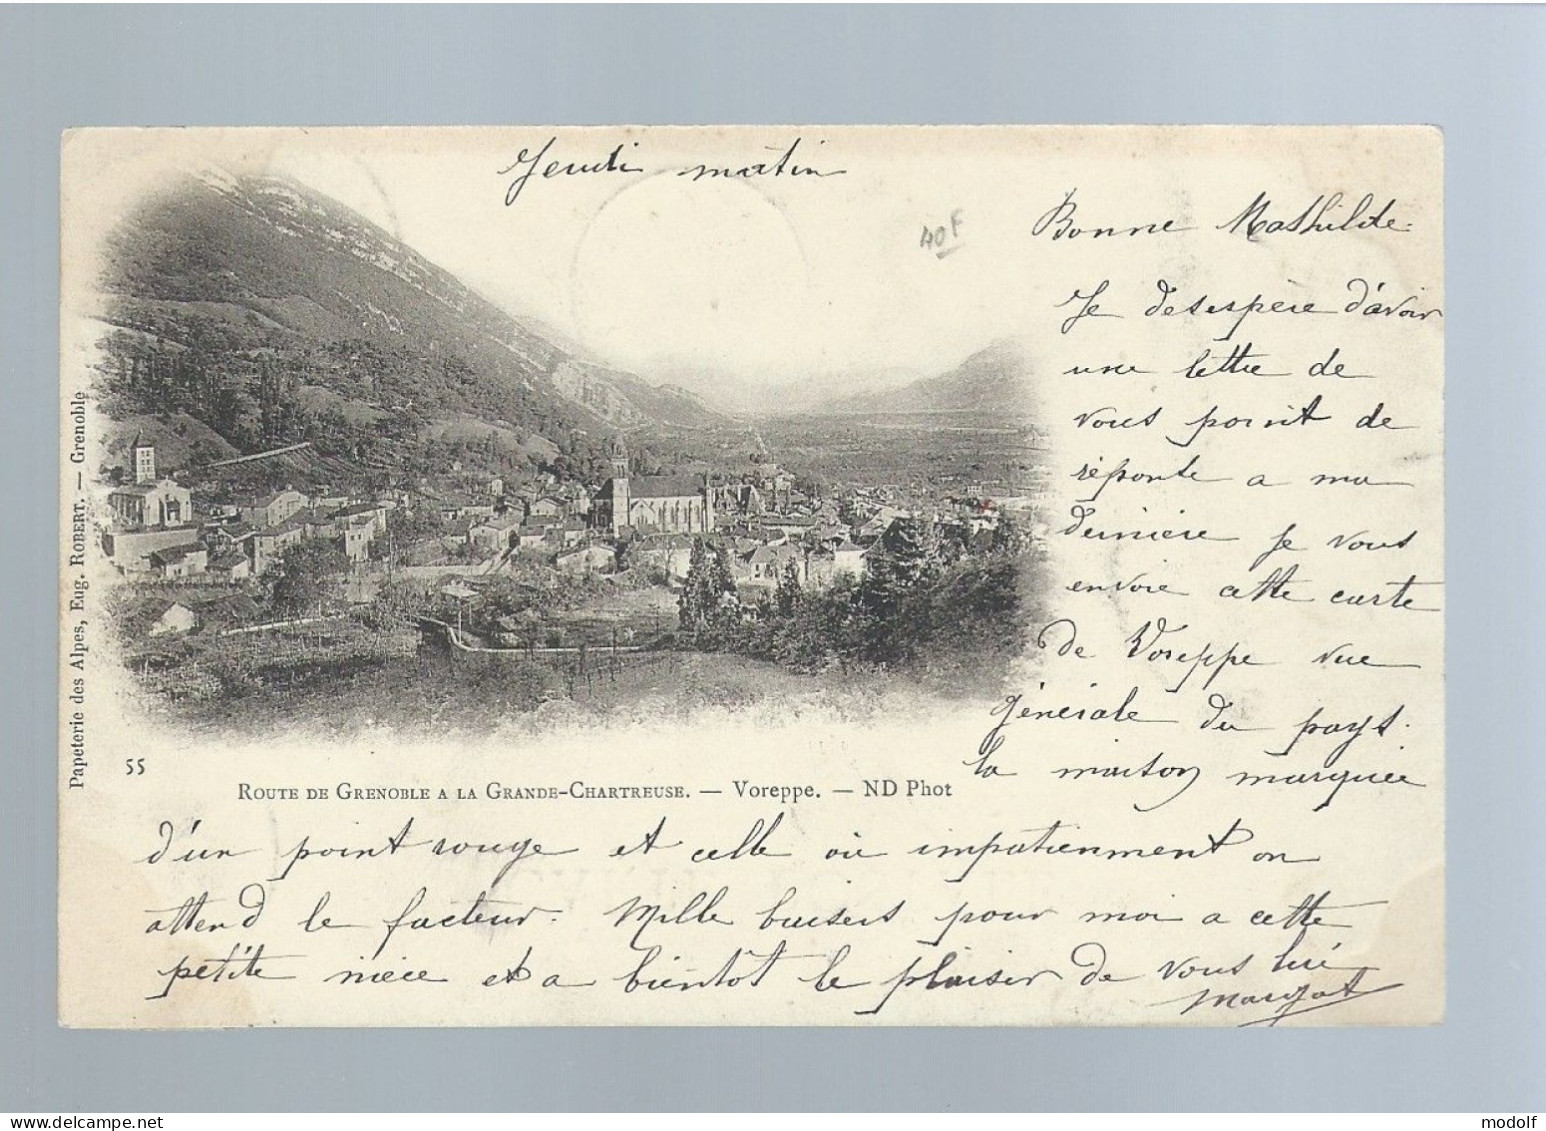 Jeudi matin
40F
Bonne Mathilde.
Je desespère d'avoir
une lettre de
vous point de
réponse a ma
dernière Je vous
envoie cette carte
de Voreppe vue
générale du pays.
la maison marquée
d'un point rouge et celle où impatiemment on
attend le facteur. Mille baisers pour moi a cette
petite nièce et a bientôt le plaisir de vous lire
Margot
Papeterie des Alpes, Eug. ROBERT. — Grenoble
55
ROUTE DE GRENOBLE A LA GRANDE-CHARTREUSE. — Voreppe. — ND Phot
delcampe.net
modolf